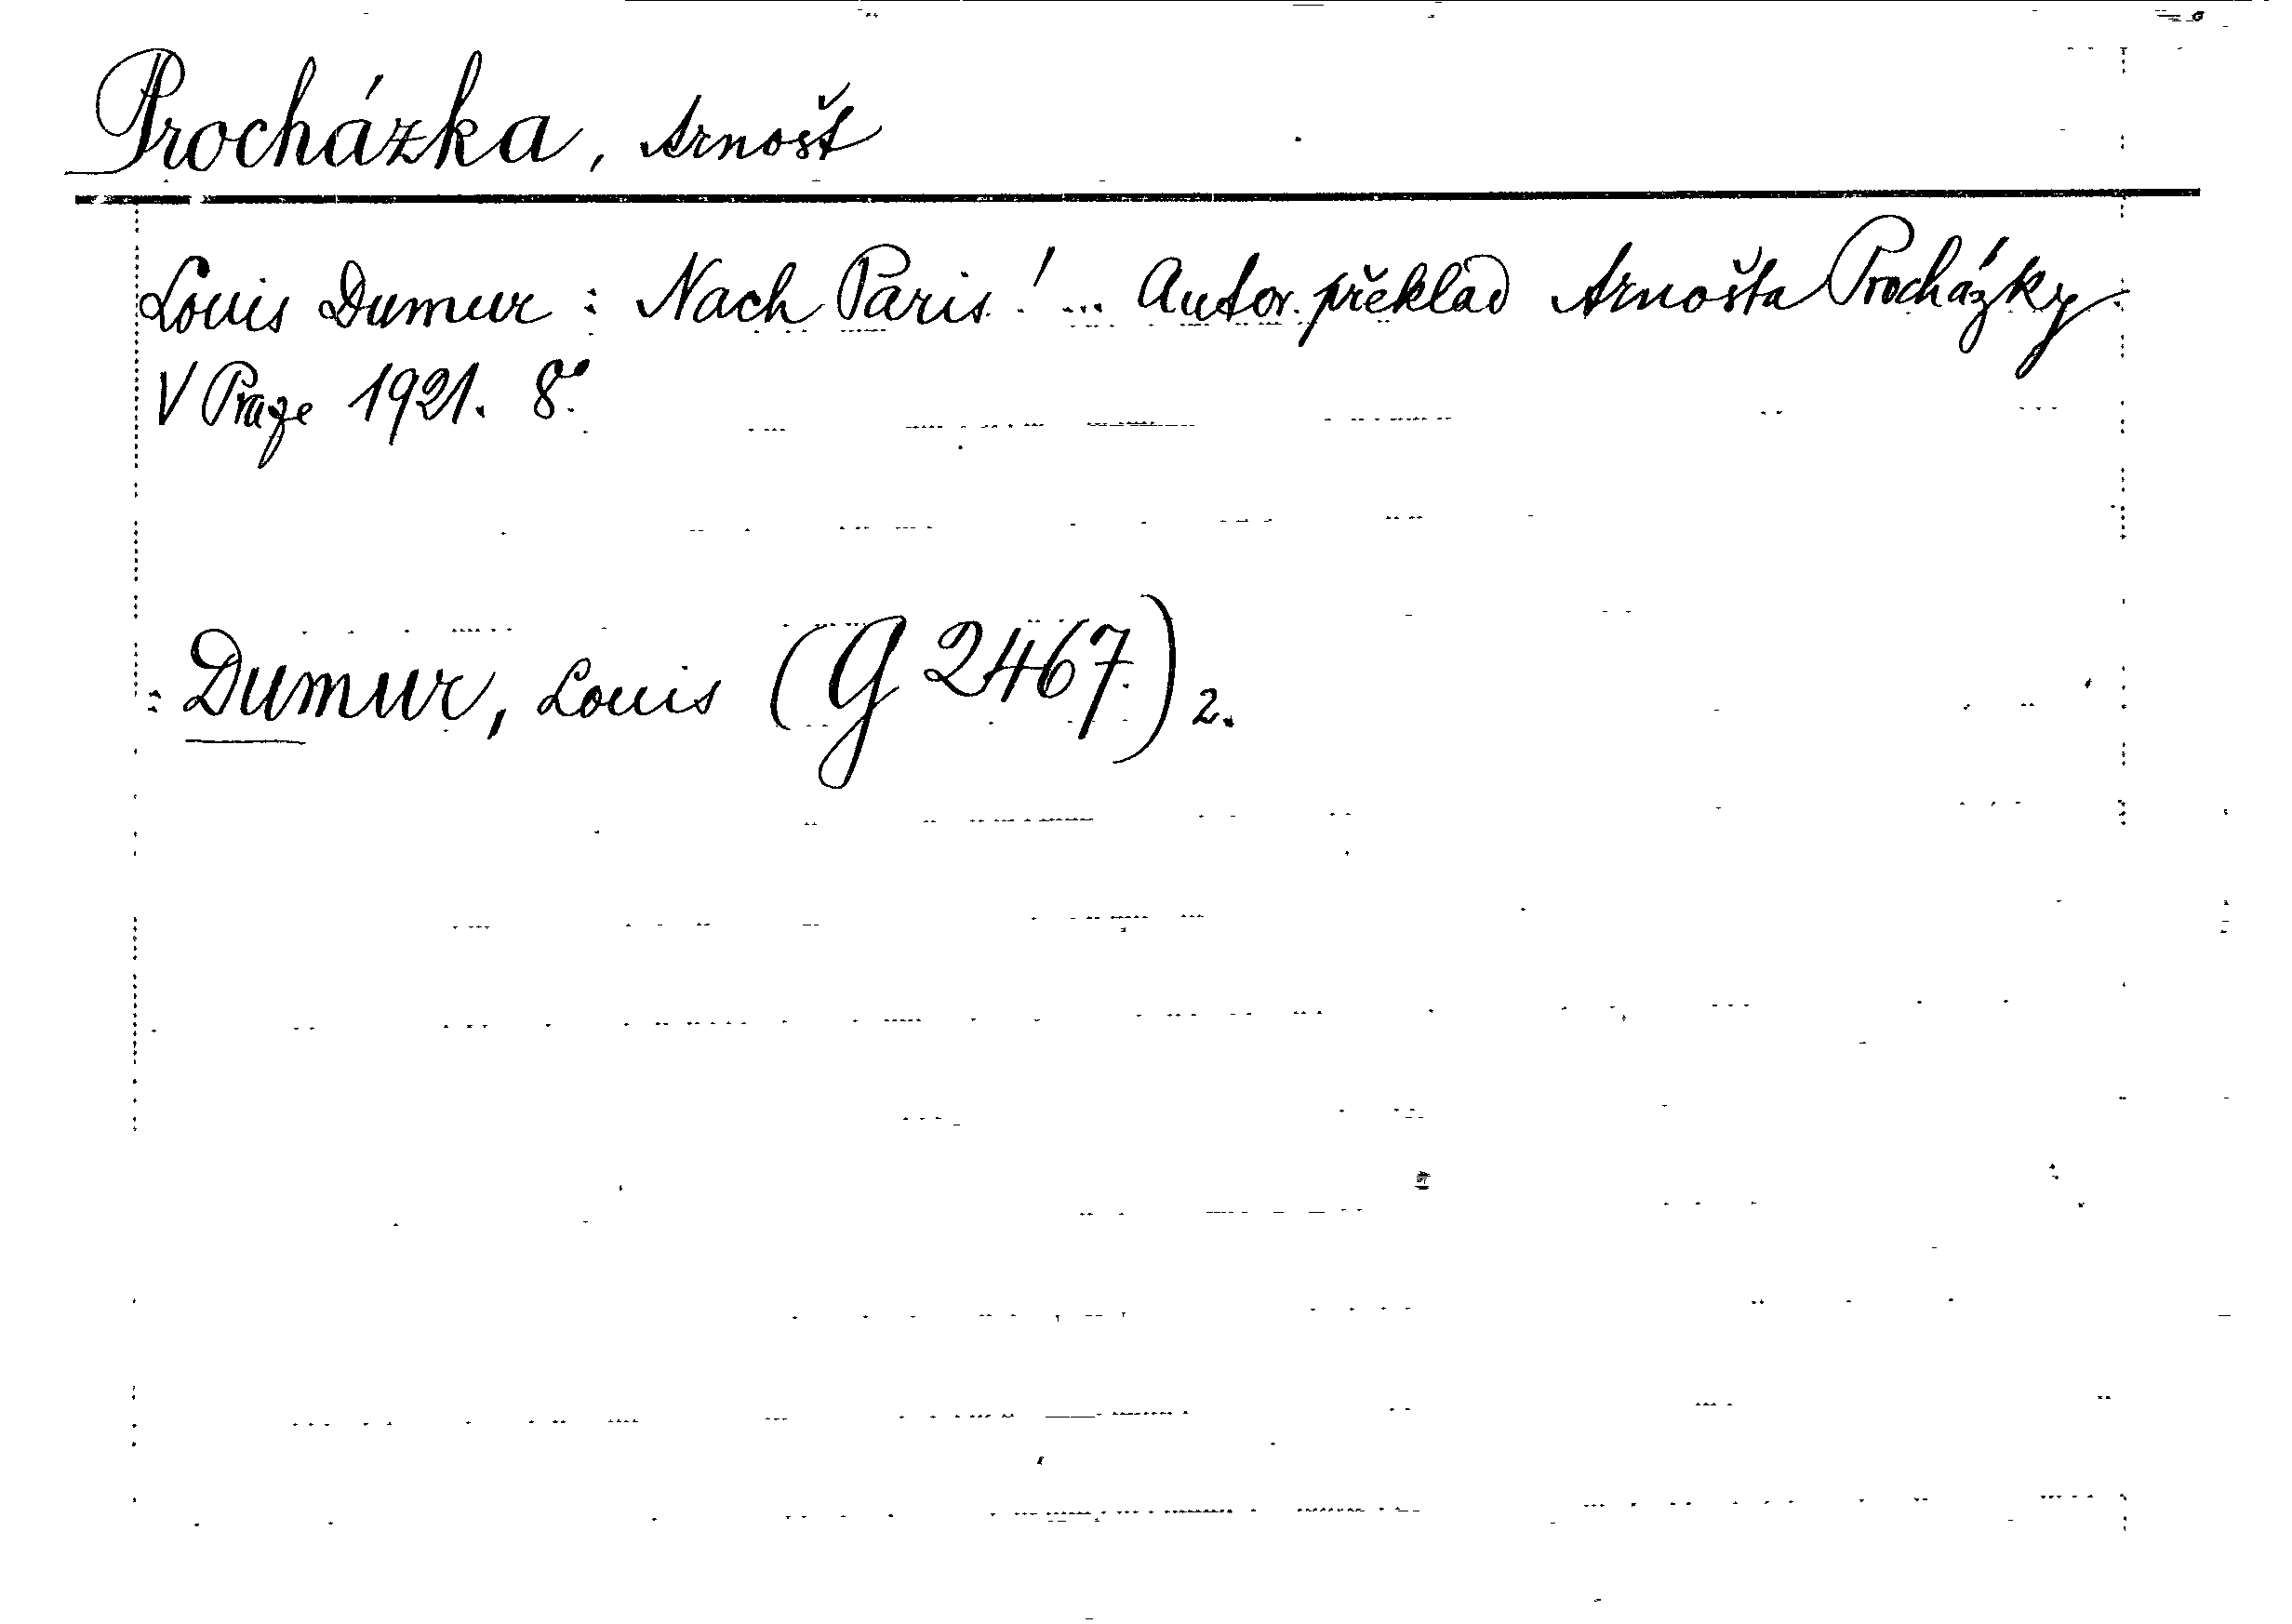 Procházka, Arnošt
Louis Dumur : Nach Paris! ... Autor. překlad Arnošta Procházky.
V Praze 1921. 8°.
: Dumur, Louis (G 2467.) 2.